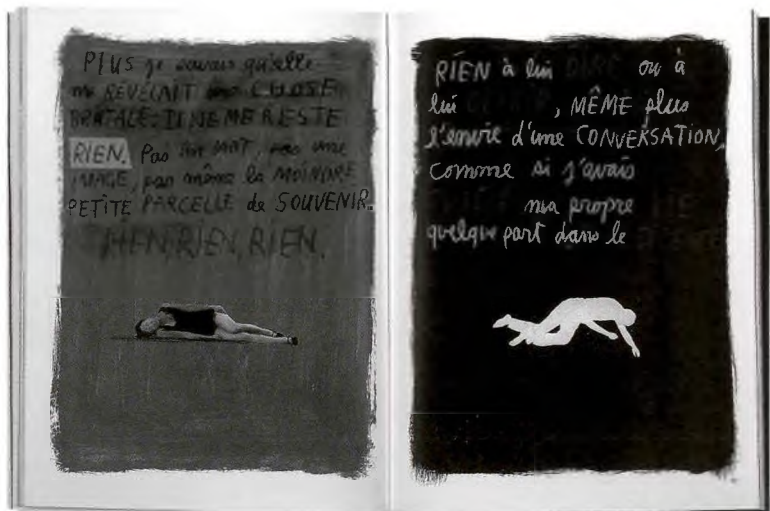 PLUS je savais qu'elle
me RÉVÉLAIT une CHOSE
BRUTALE: IL NE ME RESTE
RIEN. Pas un MOT, pas une
IMAGE, pas même la MOINDRE
PETITE PARCELLE de SOUVENIR.
RIEN, RIEN, RIEN.
RIEN à lui DIRE ou à
lui, MÊME plus
l'envie d'une CONVERSATION,
comme si j'avais
ma propre VIE
quelque part dans le